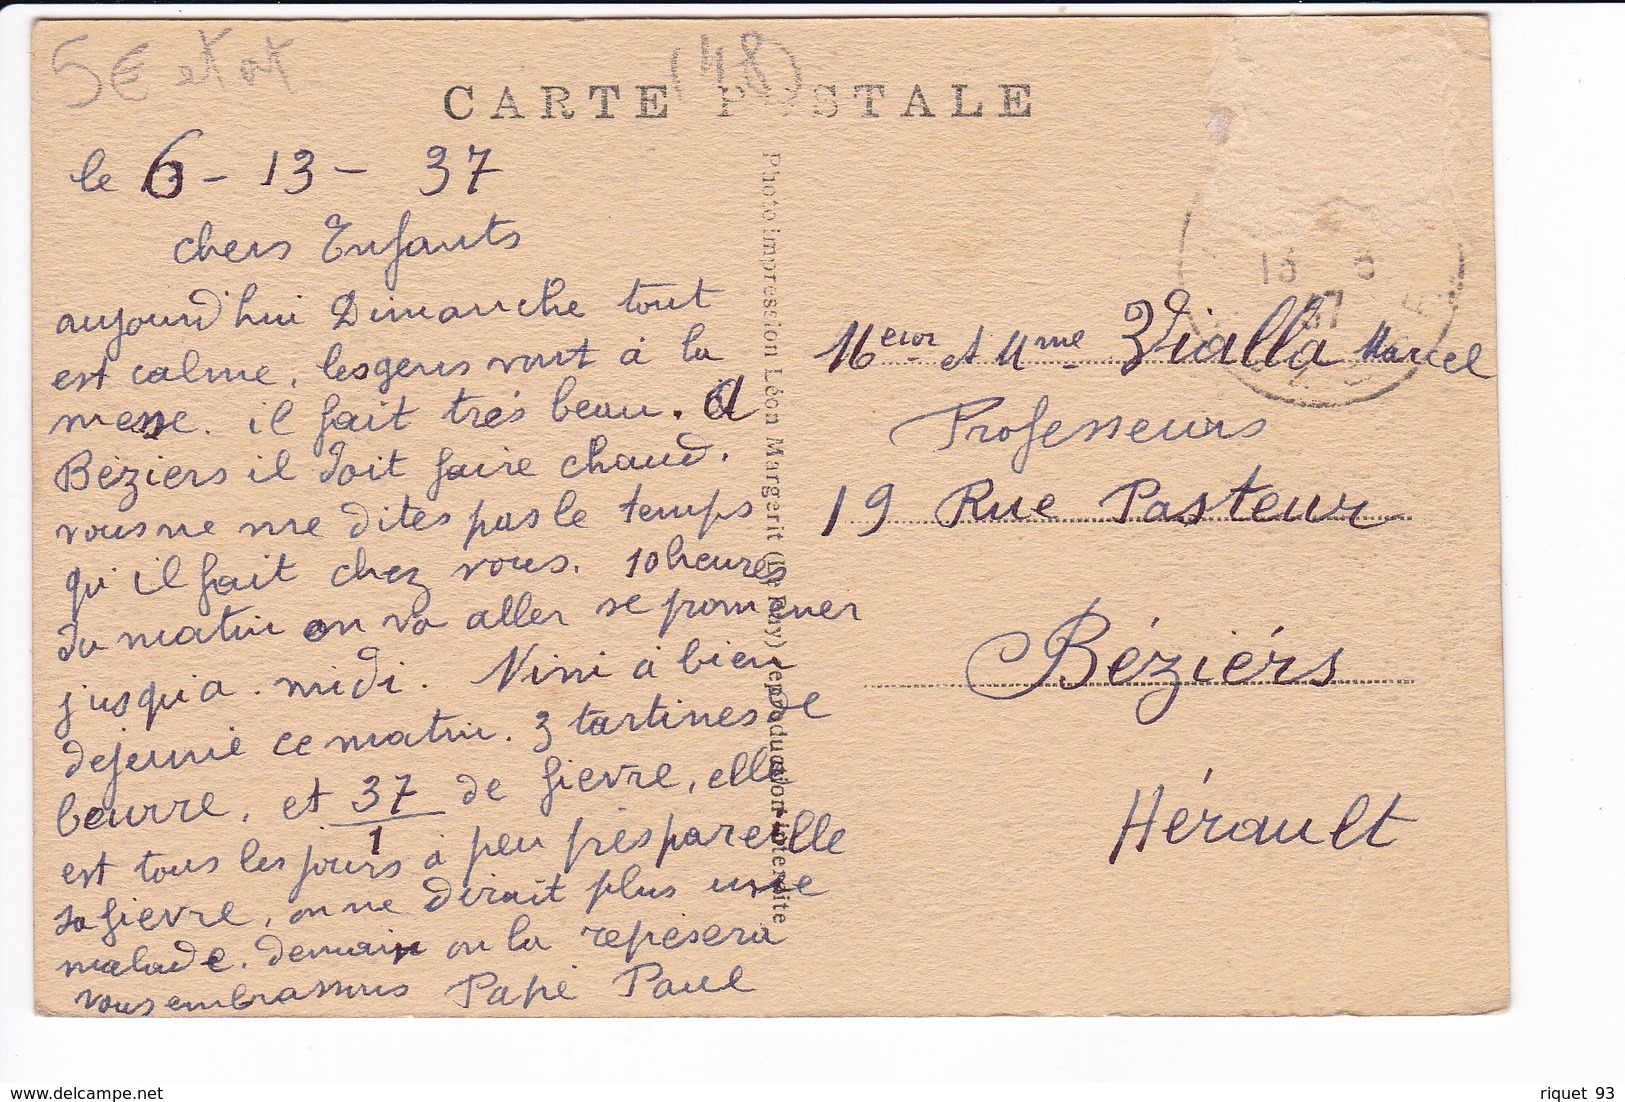 5€ etat
(48)
CARTE POSTALE
le 6 - 13 - 37
chers Enfants
aujourd'hui Dimanche tout
est calme, les gens vont à la
messe. il fait très beau. a
Béziers il doit faire chaud.
vous ne me dites pas le temps
qu'il fait chez vous. 10 heures
du matin on va aller se promener
j'usqu'a midi. Nini à bien
dejeuné ce matin. 3 tartines de
beurre, et 37/1 de fievre, elle
est tous les jours à peu près pareille
sa fievre, on ne dirait plus une
malade. demain on la repésera
vous embrassons Papé Paul
Photo impression Léon Margerit (Le Puy) reproduction interdite
13 6
37
Meur et Mme Vialla Marcel
Professeurs
19 Rue Pasteur
Béziérs
Hérault
riquet 93